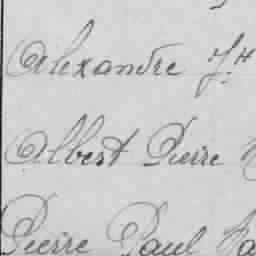 Alexandre Jh
Albert Pierre
Pierre Paul